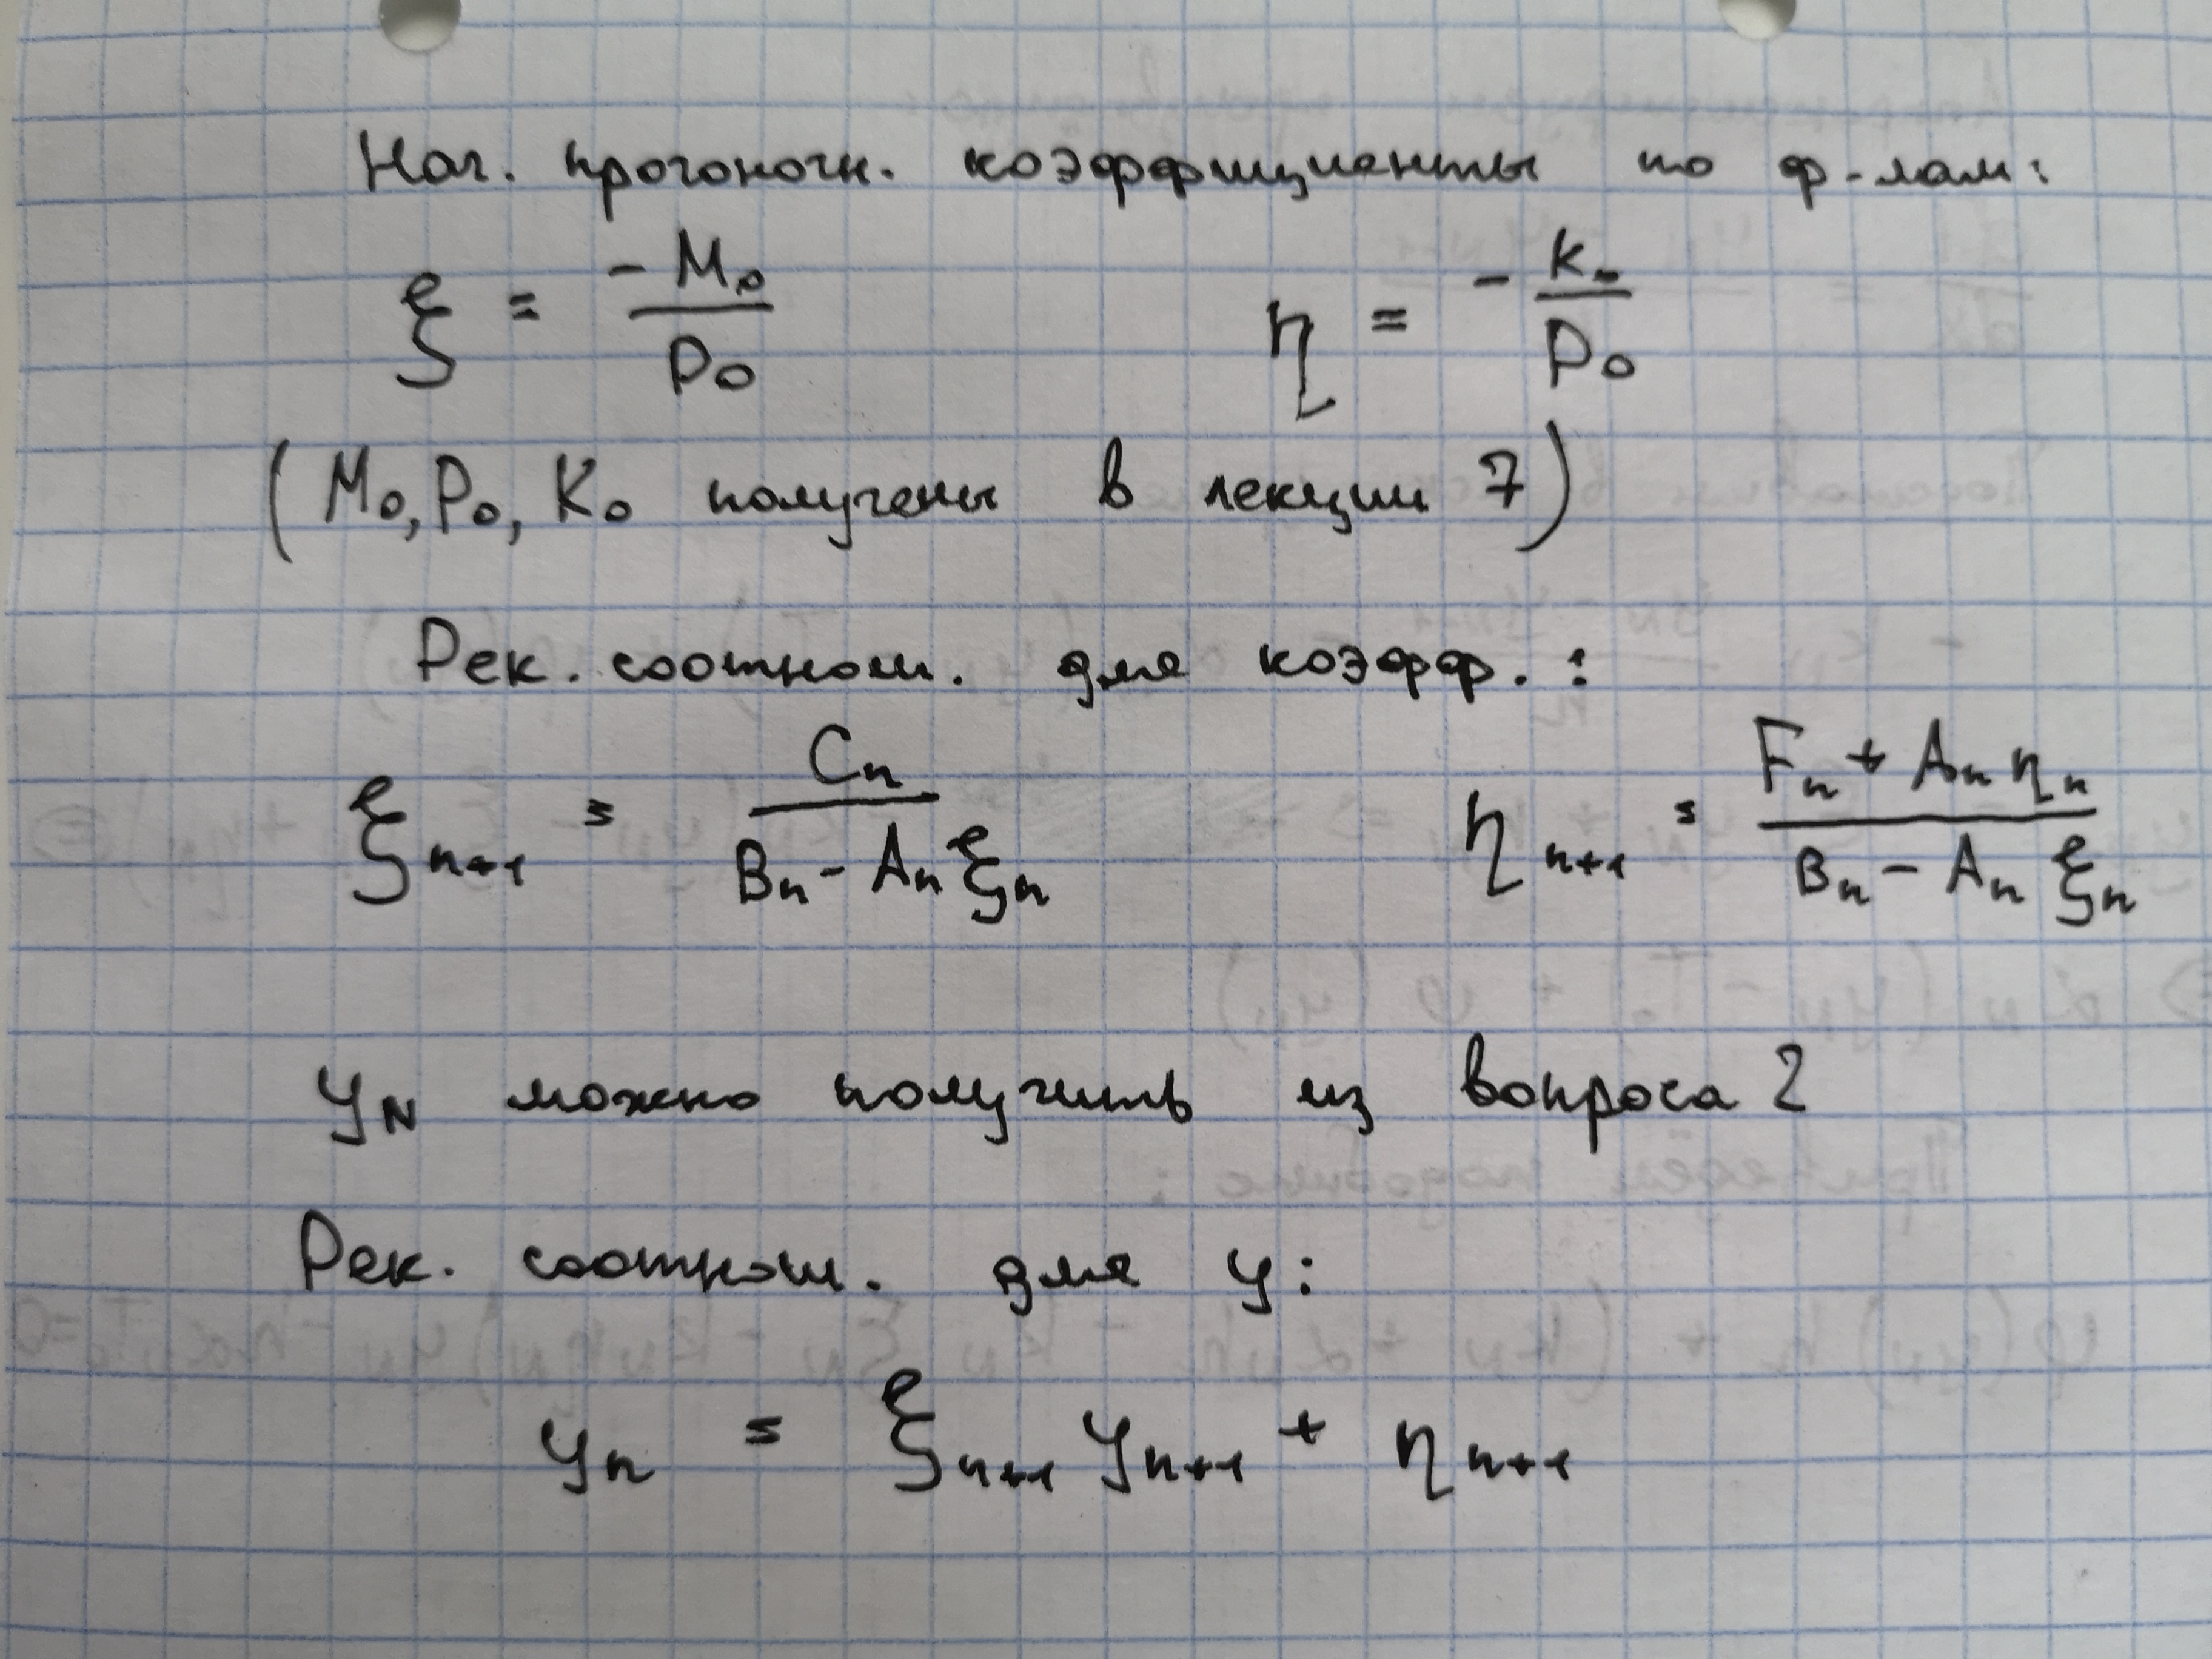 Нач. прогоночн. коэффициенты по ф-лам:
ξ = -M₀/P₀ η = -K₀/P₀
(M₀, P₀, K₀ получены в лекции 7)
Рек. соотнош. для коэфф.:
ξₙ₊₁ = Cₙ/(Bₙ - Aₙξₙ) ηₙ₊₁ = (Fₙ + Aₙηₙ)/(Bₙ - Aₙξₙ)
y_N можно получить из вопроса 2
Рек. соотнош. для y:
yₙ = ξₙ₊₁ yₙ₊₁ + ηₙ₊₁